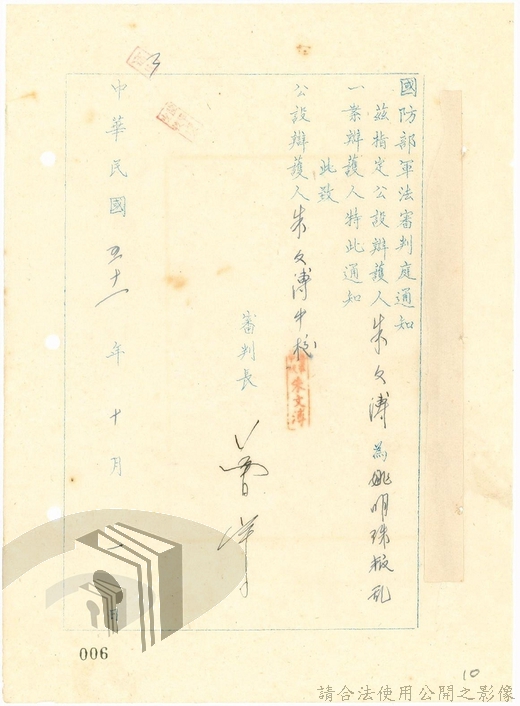 國防部軍法審判庭通知
茲指定公設辯護人朱文溥為姚明珠叛乱
一案辯護人特此通知
此致
公設辯護人朱文溥中校
朱文溥
審判長
中華民國五十一年十月一日
006
10
請合法使用公開之影像